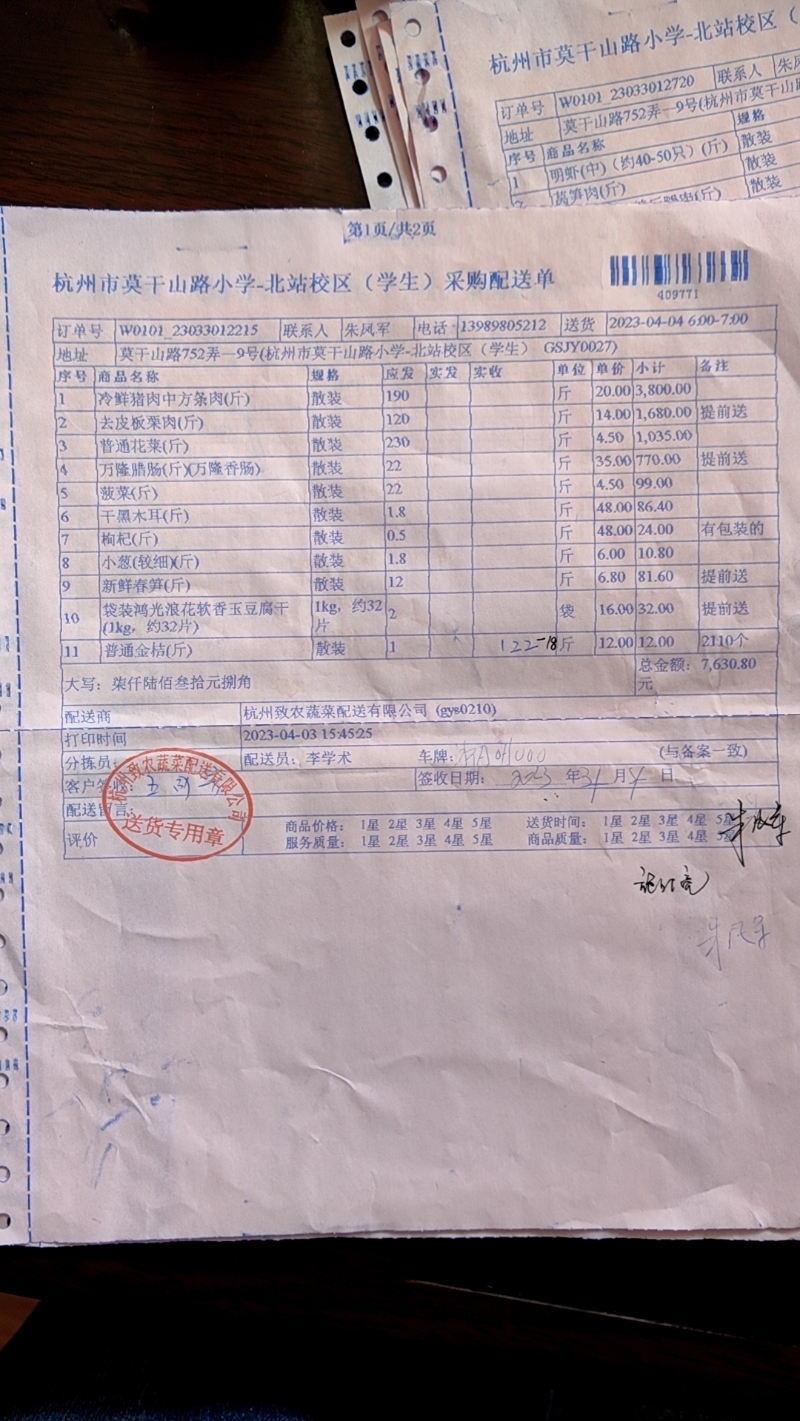 杭州市莫干山路小学-北站校区（
订单号 W0101_23033012720 联系人 朱凤
地址 莫干山路752弄一9号(杭州市莫干山路
序号 商品名称 规格
1 明虾(中)（约40-50只）(斤) 散装
莴笋肉(斤) 散装
散装
第1页/共2页
杭州市莫干山路小学-北站校区（学生）采购配送单
409771
订单号 W0101_23033012215 联系人 朱凤军 电话 13989805212 送货 2023-04-04 6:00-7:00
地址 莫干山路752弄一9号(杭州市莫干山路小学-北站校区（学生） GSJY0027)
序号 商品名称 规格 应发 实发 实收 单位 单价 小计 备注
1 冷鲜猪肉中方条肉(斤) 散装 190 斤 20.00 3,800.00
2 去皮板栗肉(斤) 散装 120 斤 14.00 1,680.00 提前送
3 普通花菜(斤) 散装 230 斤 4.50 1,035.00
4 万隆腊肠(斤)(万隆香肠) 散装 22 斤 35.00 770.00 提前送
5 菠菜(斤) 散装 22 斤 4.50 99.00
6 干黑木耳(斤) 散装 1.8 斤 48.00 86.40
7 枸杞(斤) 散装 0.5 斤 48.00 24.00 有包装的
8 小葱(较细)(斤) 散装 1.8 斤 6.00 10.80
9 新鲜春笋(斤) 散装 12 斤 6.80 81.60 提前送
10 袋装鸿光浪花软香玉豆腐干(1kg，约32片) 1kg，约32片 2 袋 16.00 32.00 提前送
11 普通金桔(斤) 散装 1 122-18 斤 12.00 12.00 2110个
大写：柒仟陆佰叁拾元捌角 总金额：7,630.80元
配送商 杭州致农蔬菜配送有限公司 (gys0210)
打印时间 2023-04-03 15:45:25
分拣员： 配送员：李学术 车牌： (与备案一致)
客户 签收日期： 2023 年 月 4 日
配送留言：
评价 商品价格： 1星 2星 3星 4星 5星 送货时间： 1星 2星 3星 4星 5星
服务质量： 1星 2星 3星 4星 5星 商品质量： 1星 2星 3星 4星
杭州致农蔬菜配送有限公司
送货专用章
朱凤军
朱凤军